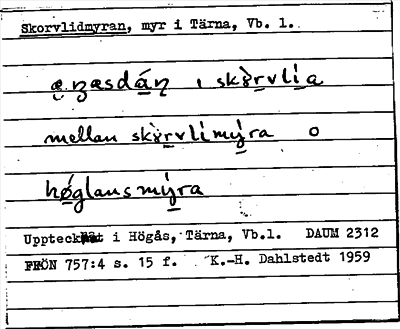 Skorvlidmyran, myr i Tärna, Vb. 1.
ı skòrvlía
mellan skòrvlimýra o
høglansmýra
Upptecknat i Högås, Tärna, Vb.1. DAUM 2312
FFÖN 757:4 s. 15 f. K.-H. Dahlstedt 1959